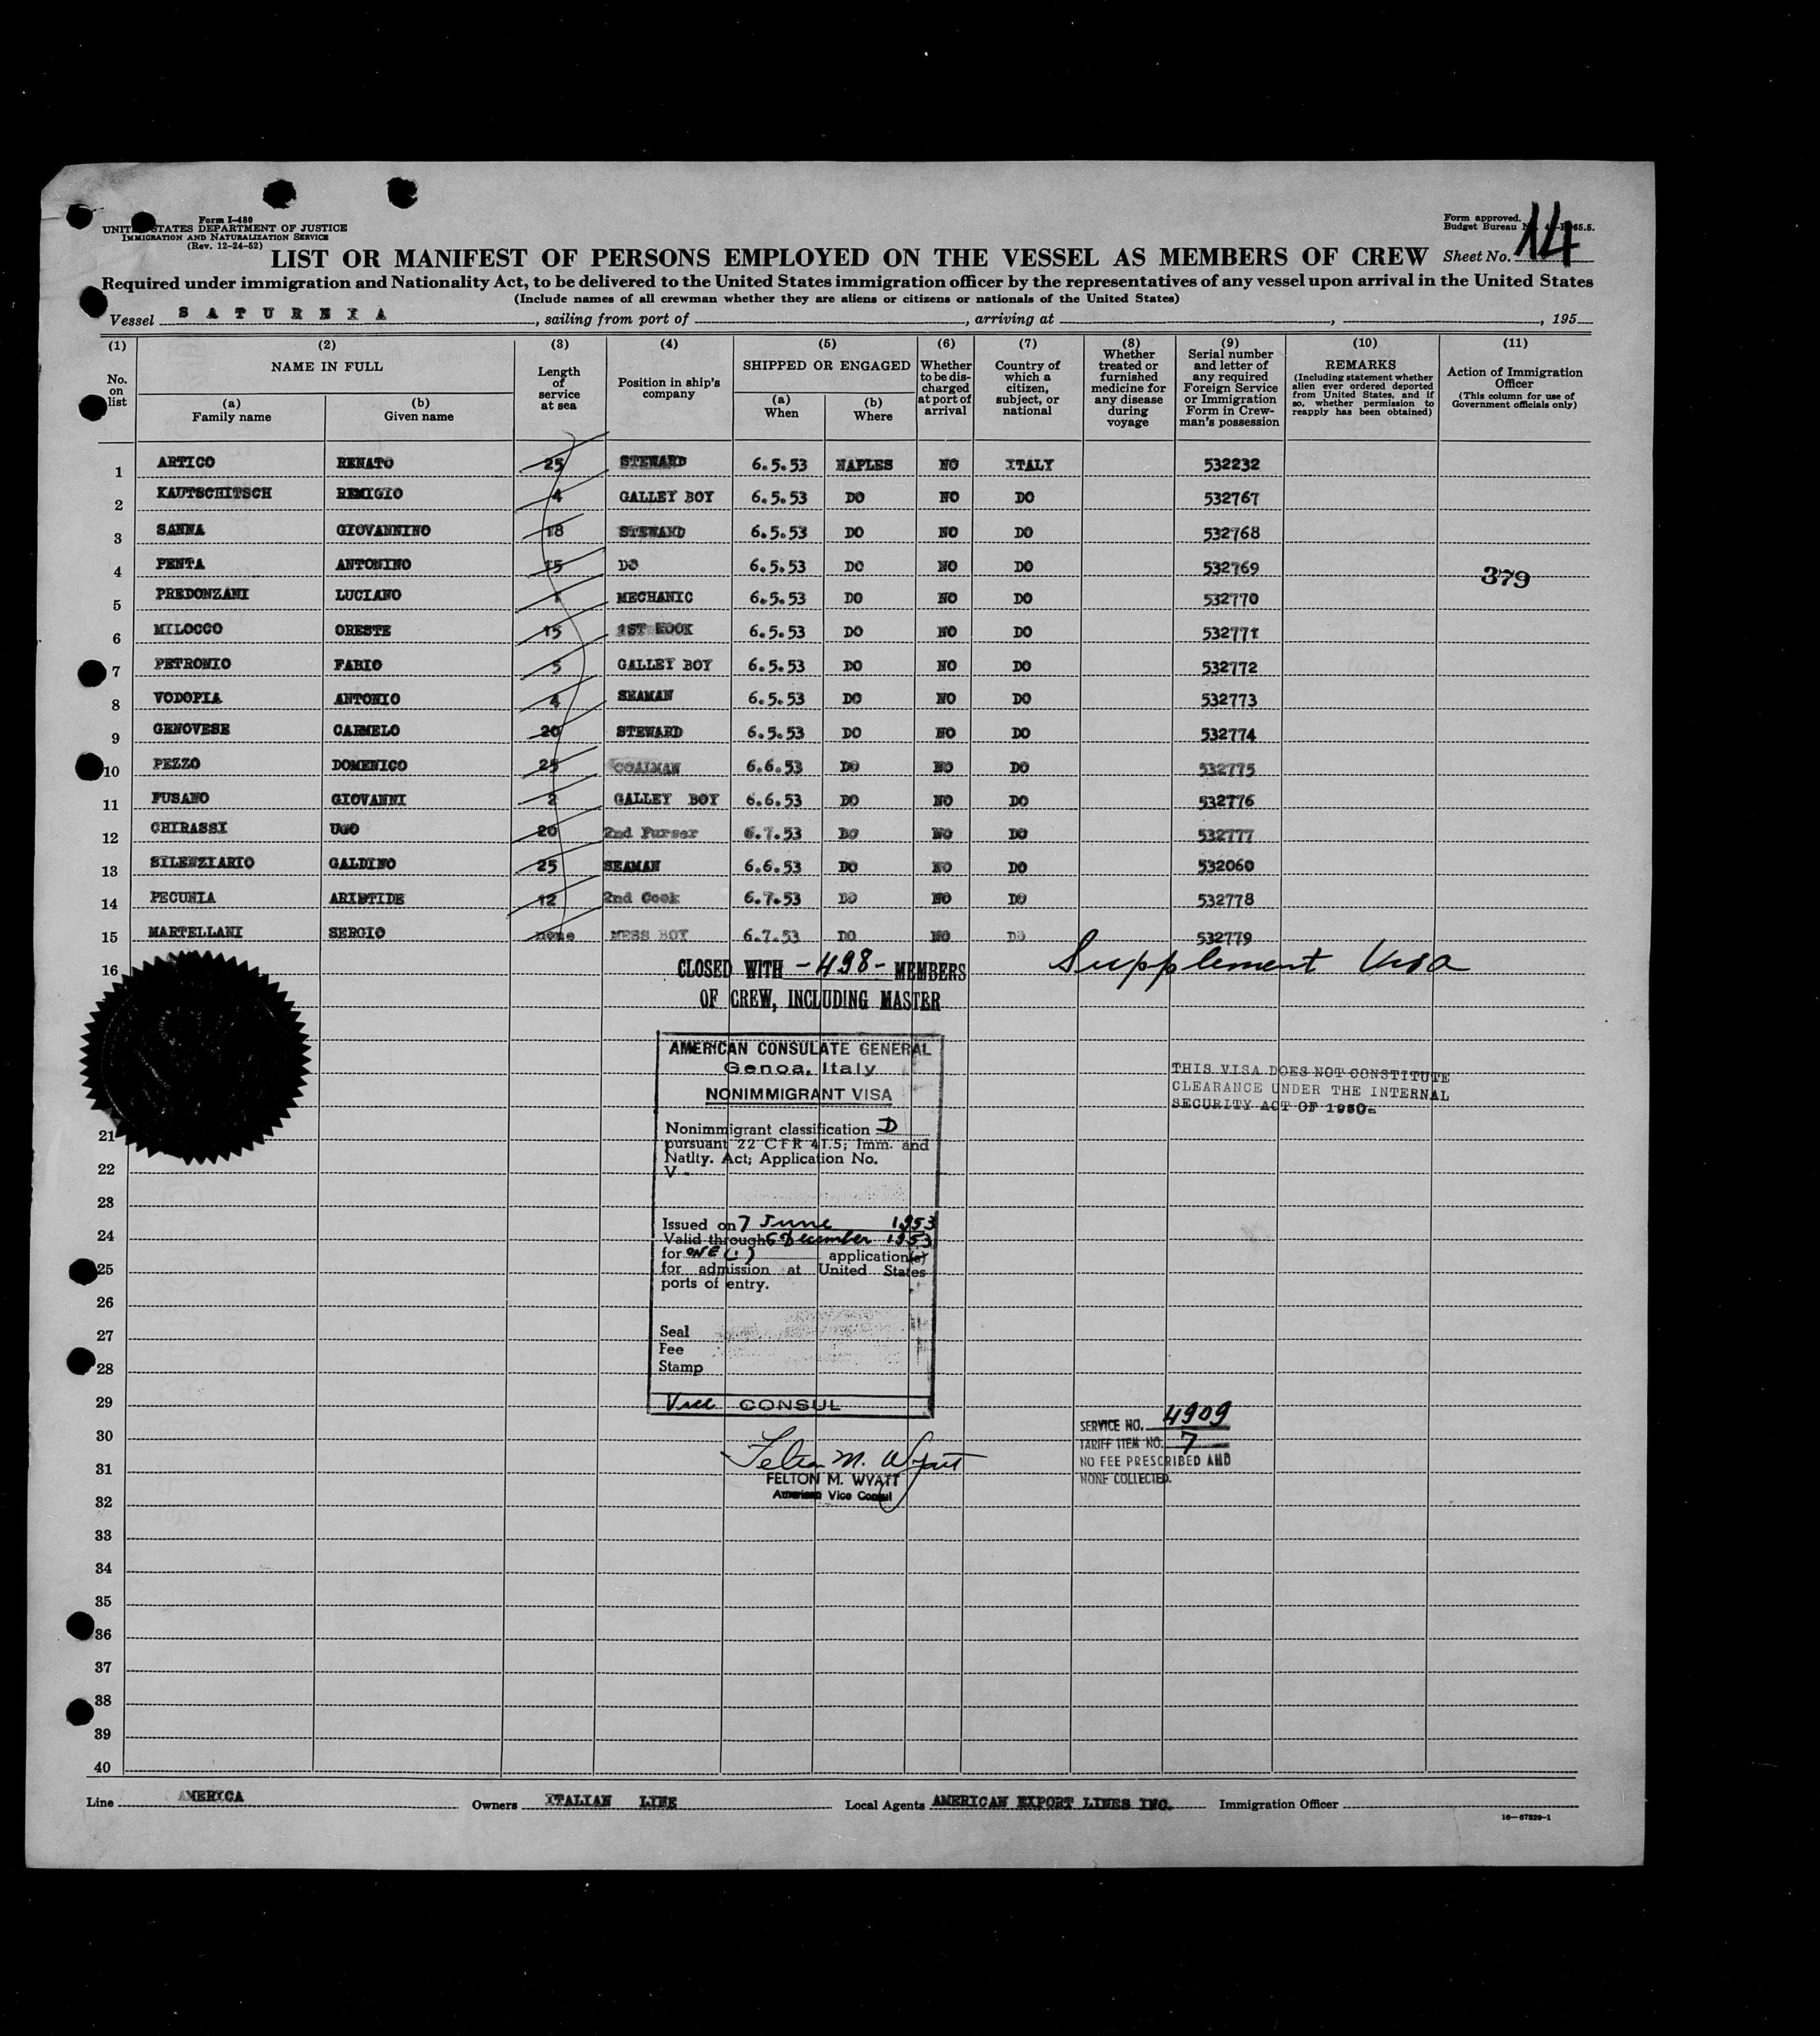 Form I-480
UNITED STATES DEPARTMENT OF JUSTICE
IMMIGRATION AND NATURALIZATION SERVICE
(Rev. 12-24-52)
Form approved.
Budget Bureau
LIST OR MANIFEST OF PERSONS EMPLOYED ON THE VESSEL AS MEMBERS OF CREW Sheet No. 14
Required under immigration and Nationality Act, to be delivered to the United States immigration officer by the representatives of any vessel upon arrival in the United States
(Include names of all crewman whether they are aliens or citizens or nationals of the United States)
Vessel SATURNIA, sailing from port of , arriving at , , 195
(1) No. on list
(2) NAME IN FULL
(a) Family name
(b) Given name
(3) Length of service at sea
(4) Position in ship's company
(5) SHIPPED OR ENGAGED
(a) When
(b) Where
(6) Whether to be discharged at port of arrival
(7) Country of which a citizen, subject, or national
(8) Whether treated or furnished medicine for any disease during voyage
(9) Serial number and letter of any required Foreign Service or Immigration Form in Crewman's possession
(10) REMARKS (Including statement whether alien ever ordered deported from United States, and if so, whether permission to reapply has been obtained)
(11) Action of Immigration Officer (This column for use of Government officials only)
1 ARTICO RENATO 25 STEWARD 6.5.53 NAPLES NO ITALY 532232
2 KAUTSCHITSCH REMIGIO 4 GALLEY BOY 6.5.53 DO NO DO 532767
3 SANNA GIOVANNINO 18 STEWARD 6.5.53 DO NO DO 532768
4 PENTA ANTONINO 15 DO 6.5.53 DO NO DO 532769 379
5 PREDONZANI LUCIANO MECHANIC 6.5.53 DO NO DO 532770
6 MILOCCO ORESTE 15 1ST KOOK 6.5.53 DO NO DO 532771
7 PETRONIO FABIO 5 GALLEY BOY 6.5.53 DO NO DO 532772
8 VODOPIA ANTONIO 4 SEAMAN 6.5.53 DO NO DO 532773
9 GENOVESE CARMELO 20 STEWARD 6.5.53 DO NO DO 532774
10 PEZZO DOMENICO 25 COALMAN 6.6.53 DO NO DO 532775
11 FUSANO GIOVANNI 2 GALLEY BOY 6.6.53 DO NO DO 532776
12 CHIRASSI UGO 20 2nd Purser 6.7.53 DO NO DO 532777
13 SILENZIARIO GALDINO 25 SEAMAN 6.6.53 DO NO DO 532060
14 PECUNIA ARISTIDE 12 2nd Cook 6.7.53 DO NO DO 532778
15 MARTELLANI SERGIO none MESS BOY 6.7.53 DO NO DO 532779
16 CLOSED WITH -498- MEMBERS Supplement Visa
OF CREW, INCLUDING MASTER
AMERICAN CONSULATE GENERAL
Genoa, Italy
NONIMMIGRANT VISA
THIS VISA DOES NOT CONSTITUTE
CLEARANCE UNDER THE INTERNAL
SECURITY ACT OF 1950.
Nonimmigrant classification D
21 pursuant 22 CFR 41.5; Imm. and
Natlty. Act; Application No.
22 V -
23
Issued on 7 June 1953
24 Valid through 6 December 1953
for ONE (1) application(s)
25 for admission at United States
ports of entry.
26
27 Seal
Fee
28 Stamp
29 Vice CONSUL
SERVICE NO. 4909
30 TARIFF ITEM NO. 7
Felton M. Wyatt
31 NO FEE PRESCRIBED AND
FELTON M. WYATT NONE COLLECTED.
American Vice Consul
32
33
34
35
36
37
38
39
40
Line AMERICA Owners ITALIAN LINE Local Agents AMERICAN EXPORT LINES INC. Immigration Officer
16—67829-1